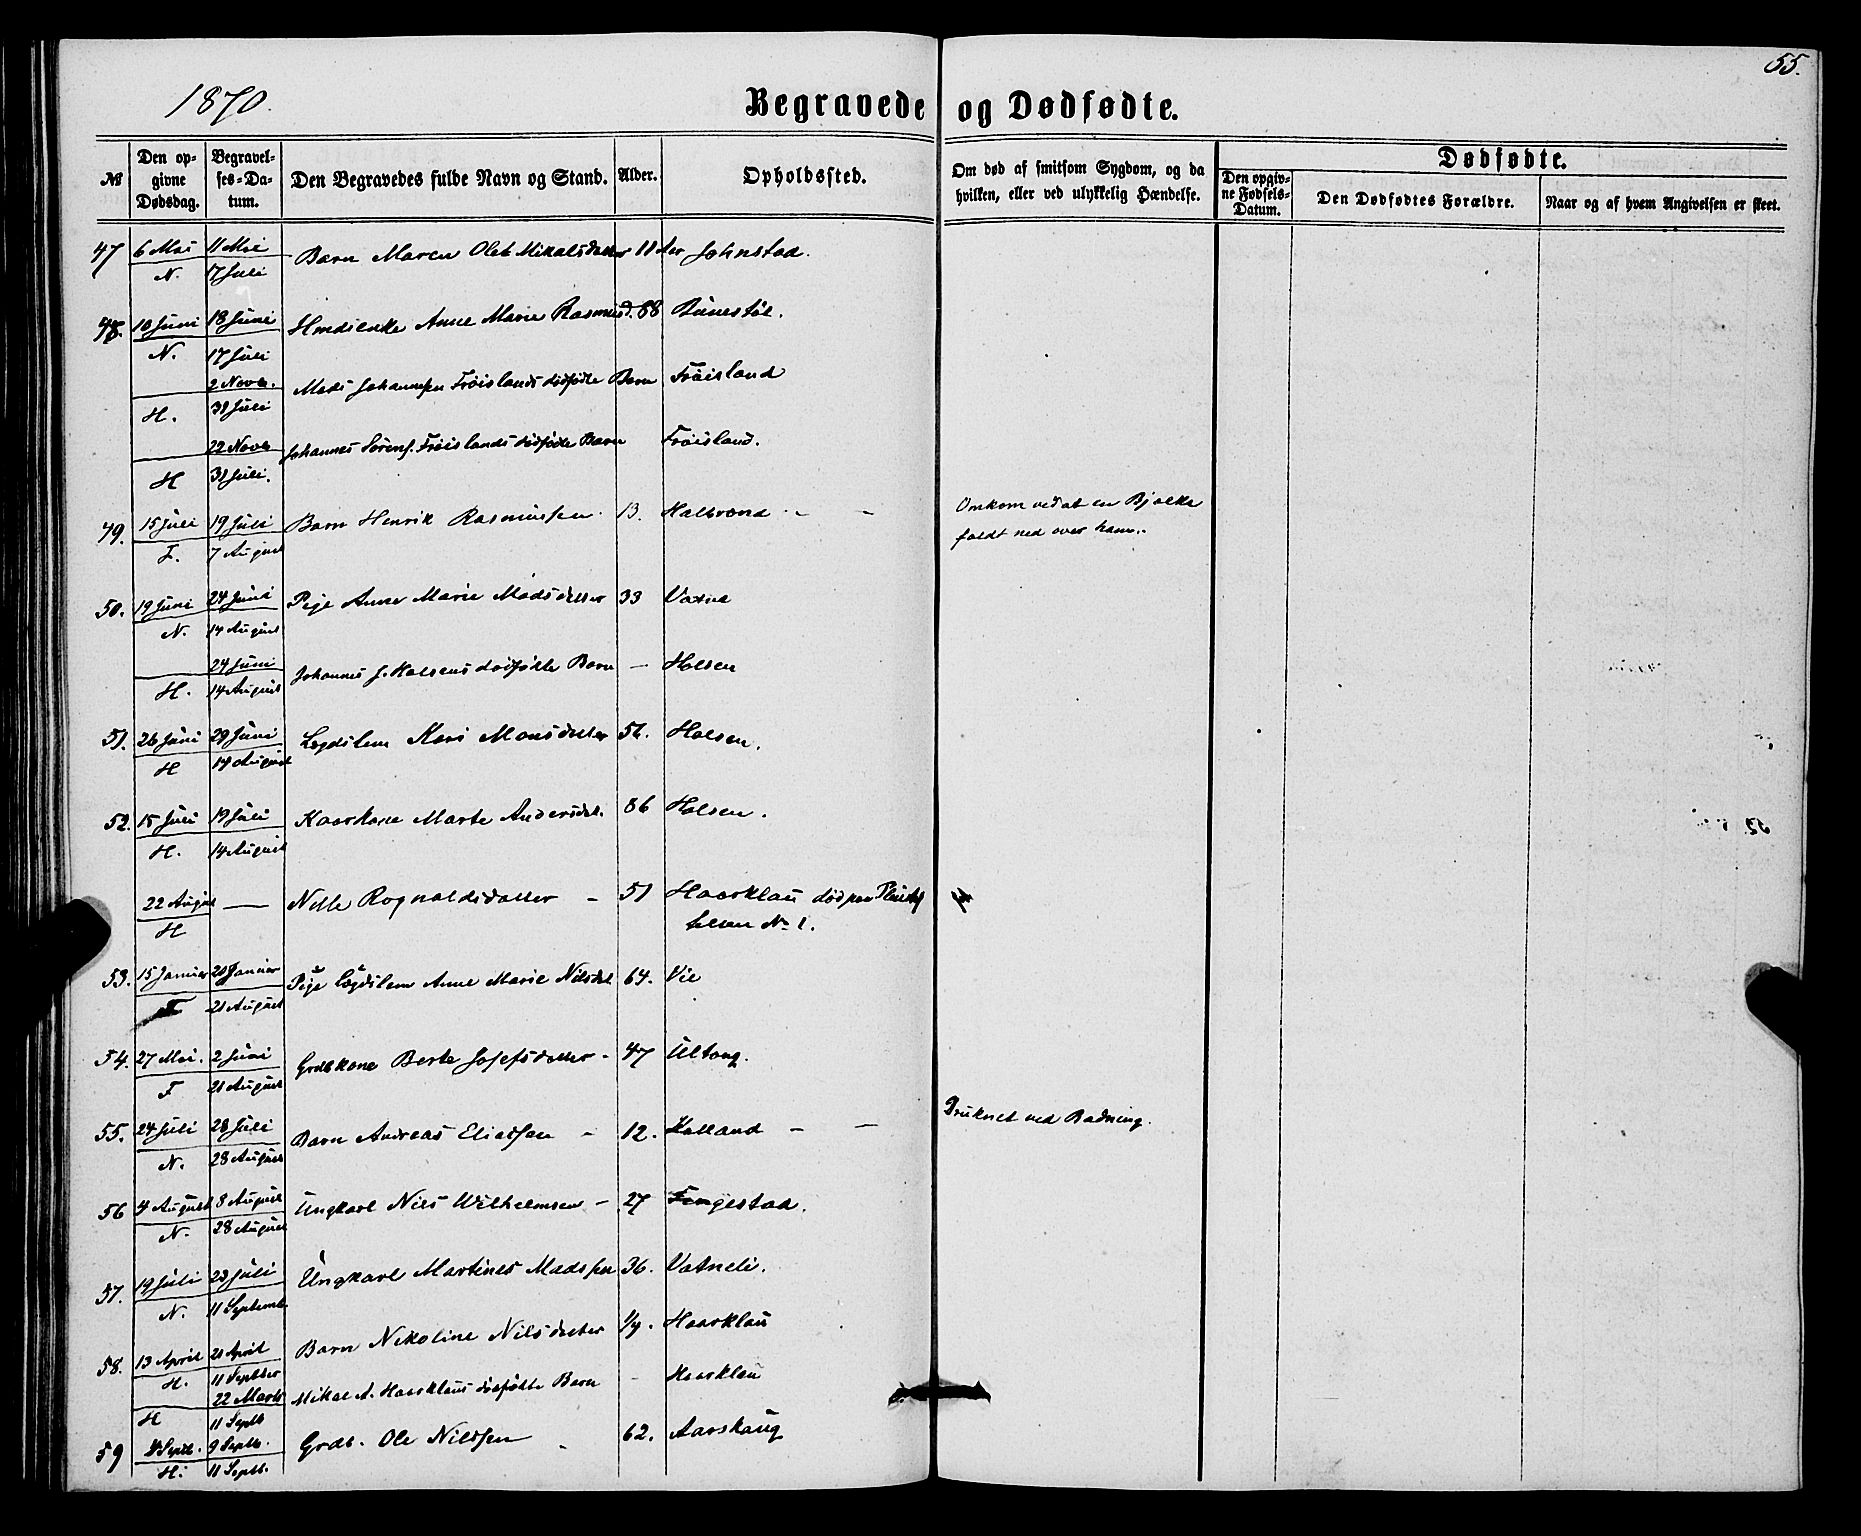 55.
1870.
Begravede og Dødfødte.
№
Den op-
givne
Dødsdag.
Begravel-
ses-Da-
tum.
Den Begravedes fulde Navn og Stand.
Alder.
Opholdssted.
Om død af smitsom Sygdom, og da
hvilken, eller ved ulykkelig Hændelse.
Dødfødte.
Den opgiv-
ne Fødsels-
Datum.
Den Dødfødtes Forældre.
Naar og af hvem Angivelsen er skeet.
47 6 Mai 11 Mai Barn Maren Olet Mikalsdatter 11 Aar Johnstad.
N. 17 Juli
48. 10 Juni 18 Juni Anne Marie Rasmusd. 88 Bünestøl.
N. 17 Juli
2 Novb. Mads Johannessen Frøislands dødfødte Barn Frøisland
H. 31 Juli
22 Novb Johannes Sørens. Frøislands dødfødte Barn Frøisland.
H 31 Juli.
49. 15 Juli 19 Juli Barn Henrik Rasmussen 13. Kalvrond - - Omkom ved at en Bjælke
J. 7 August faldt ned over ham.
50. 19 Juni 24 Juni Pige Anne Marie Madsdatter 33 Vatne
N. 14 August
24 Juni Johannes J. Holsens dødfødte Barn - Holsen
H. 14 August
51. 26 Juni 29 Juni Legdslem Kari Monsdatter 56. Holsen.
H 14 August
52. 15 Juli 19 Juli Kaarkone Marte Andersdt. 86 Holsen.
H. 14 August
22 August — Nille Rognaldsdatter - 51 Haarklau død paa
N. 1.
H
53. 15 Januar 20 Januar Pige Legdslem Anne Marie Nilsdt. 64. Vie
F 21 August
54. 27 Mai. 2 Juni Grdbkone Berte Josefsdatter - 47 Ultang.
F 21 August
55. 24 Juli 28 Juli Barn Andreas Eliassen - 12. Kalland - - Druknet ved Badning.
N. 28 August
56 4 August 8 August Ungkarl Nils Wilhelmsen - 27 Fengestad.
N. 28 August
57. 19 Juli 23 Juli Ungkarl Martines Madssen 36. Vatneli.
N. 11 Septemb.
58. 13 April 21 April Barn Nikoline Nilsdatter 1/4. Haarklau
H. 11 Septber
22 Marts Mikal A. Haarklaus dødfødte Barn - Haarklau
H 11 Septb
59 4 Septb. 9 Septb. Grdb. Ole Nilssen 62. Aarskaug
H. 11 Septb.